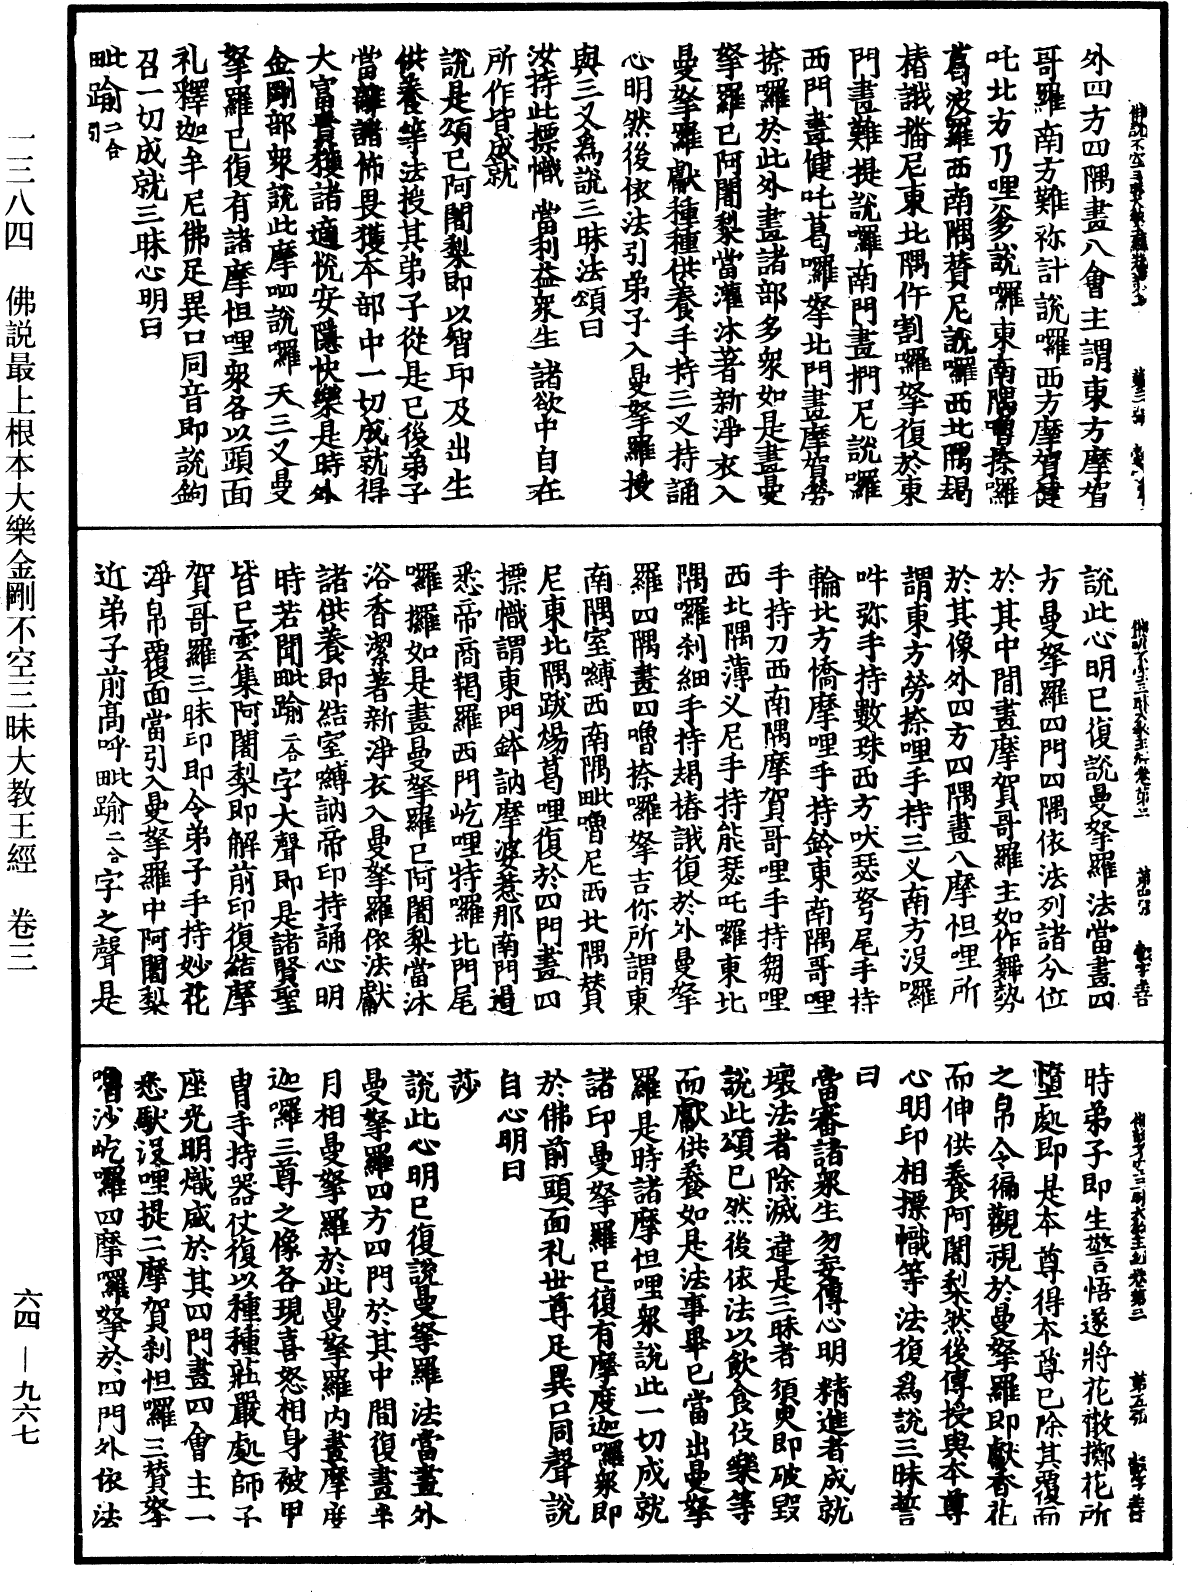 一三八四　佛説最上根本大樂金剛不空三昧大教王經　卷三
六四—九六七
外四方四隅畫八會主謂東方摩賀
哥羅南方難祢計說囉西方摩賀健
吒北方乃哩爹說囉東南隅嚕捺囉
葛波羅西南隅賛尼說囉西北隅朅
樁誐播尼東北隅仵割囉拏復於東
門畫難提說囉南門畫捫尼說囉
西門畫健吒葛囉拏北門畫摩賀勞
捺囉於此外畫諸部多衆如是畫曼
拏羅已阿闍梨當灌沐著新淨衣入
曼拏羅獻種種供養手持三叉持誦
心明然後依法引弟子入曼拏羅授
與三叉為說三昧法頌曰
汝持此摽幟　當利益衆生　諸欲中自在
所作皆成就
說是頌已阿闍梨即以智印及出生
供養等法授其弟子從是已後弟子
當離諸怖畏獲本部中一切成就得
大富貴獲諸適悅安隱快樂是時外
金剛部衆說此摩呬說囉天三叉曼
拏羅已復有諸摩怛哩衆各以頭面
礼釋迦牟尼佛足異口同音即說鉤
召一切成就三昧心明曰
毗踰二合引
說此心明已復說曼拏羅法當畫四
方曼拏羅四門四隅依法列諸分位
於其中間畫摩賀哥羅主如作舞勢
於其像外四方四隅畫八摩怛哩所
謂東方勞捺哩手持三叉南方沒囉
吽弥手持數珠西方吠瑟弩尾手持
輪北方憍摩哩手持鈴東南隅哥哩
手持刀西南隅摩賀哥哩手持芻哩
西北隅薄叉尼手持能瑟吒囉東北
隅囉刹細手持朅樁誐復於外曼拏
羅四隅畫四嚕捺囉拏吉你所謂東
南隅室嚩西南隅毗嚕尼西北隅賛
尼東北隅跋楊葛哩復於四門畫四
摽幟謂東門鉢訥摩婆惹那南門過
悉帝商羯羅西門屹哩特囉北門尾
囉攞如是畫曼拏羅已阿闍梨當沐
浴香潔著新淨衣入曼拏羅依法獻
諸供養即結室嚩訥帝印持誦心明
時若聞毗踰二合字大聲即是諸賢聖
皆已雲集阿闍梨即解前印復結摩
賀哥羅三昧印即令弟子手持妙花
淨帛覆面當引入曼拏羅中阿闍梨
近弟子前高呼毗踰二合字之聲是
時弟子即生警悟遂將花散擲花所
墮處即是本尊得本尊已除其覆面
之帛令徧觀視於曼拏羅即獻香花
而伸供養阿闍梨然後傳授與本尊
心明印相摽幟等法復為說三昧誓
曰
當審諸衆生勿妄傳心明精進者成就
壞法者除滅違是三昧者須臾即破毀
說此頌已然後依法以飲食伎樂等
而獻供養如是法事畢已當出曼拏
羅是時諸摩怛哩衆說此一切成就
諸印曼拏羅已復有摩度迦囉衆即
於佛前頭面礼世尊足異口同聲說
自心明曰
莎
說此心明已復說曼拏羅法當畫外
曼拏羅四方四門於其中間復畫半
月相曼拏羅於此曼拏羅內畫摩度
迦囉三尊之像各現喜怒相身被甲
冑手持器仗復以種種莊嚴處師子
座光明熾盛於其四門畫四會主一
悉馱沒哩提二摩賀刹怛囉三賛拏
嚕沙屹囉四摩囉拏於四門外依法